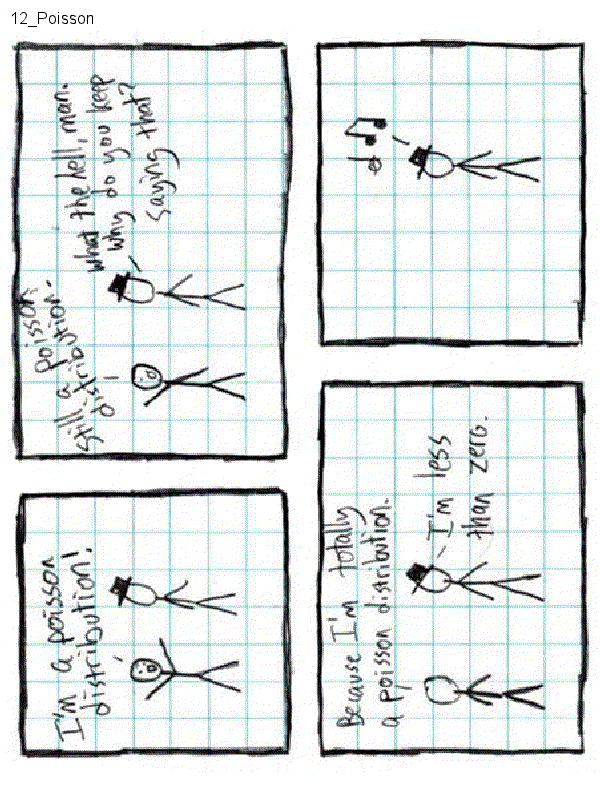 12_Poisson
I'm a poisson
distribution!
Still a poisson
distribution.
What the hell, man.
Why do you keep
saying that?
Because I'm totally
a poisson distribution.
I'm less
than zero.